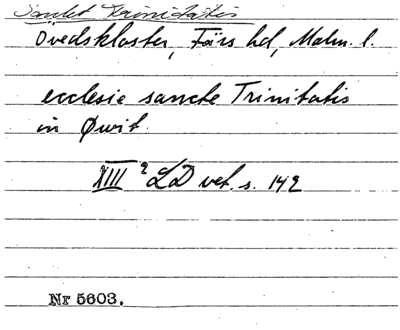 Sankt Trinitatis
Övedskloster, Färs hd, Malm. l.
ecclesie sancte Trinitatis
in Øwit.
XIII 2 LD vet. s. 142
Nr 5603.